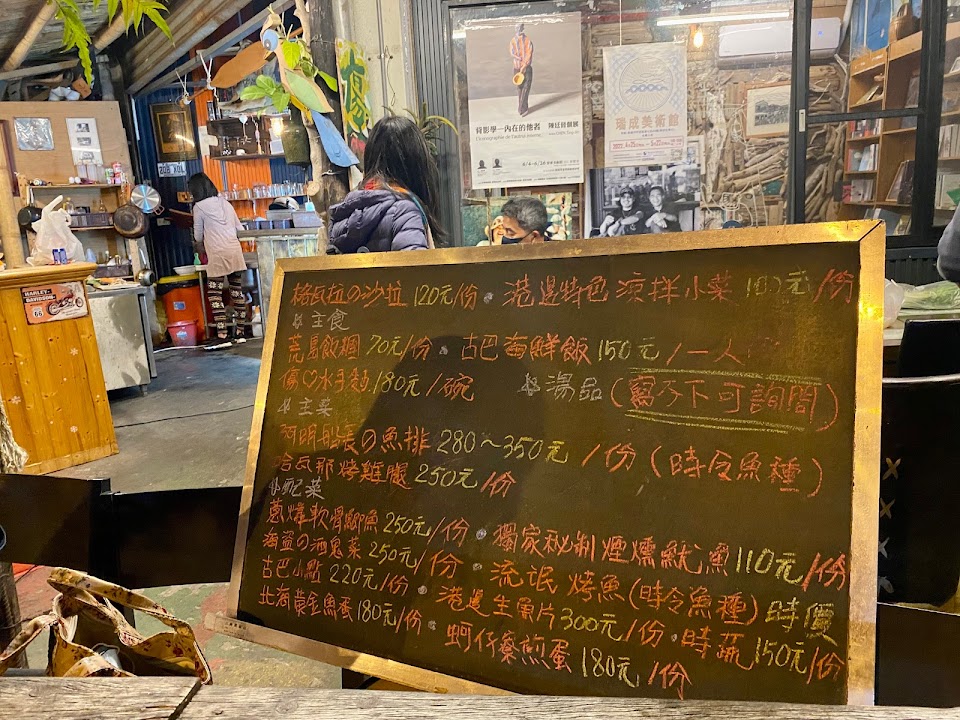 凌
背影學一內在的他者 陳廷晉個展
瑞成美術館
HARLEY-DAVIDSON
66
格瓦拉の沙拉120元/份 港邊特色涼拌小菜 元/份
主食
荒島飯糰70元/份 古巴海鮮飯150元/一人
傷♡水手麵180元/碗 湯品(寫不下可詢問)
主菜
阿明船長の魚排280~350元/份(時令魚種)
哈瓦那烤雞腿250元/份
配菜
蔥爆軟骨鯽魚250元/份 獨家秘制煙燻魷魚110元/份
海盜の酒鬼菜250元/份 流氓烤魚(時令魚種)時價
古巴小點220元/份 港邊生魚片300元/份 時蔬150元/份
北海黄金魚蛋180元/份 蚵仔寮煎蛋180元/份